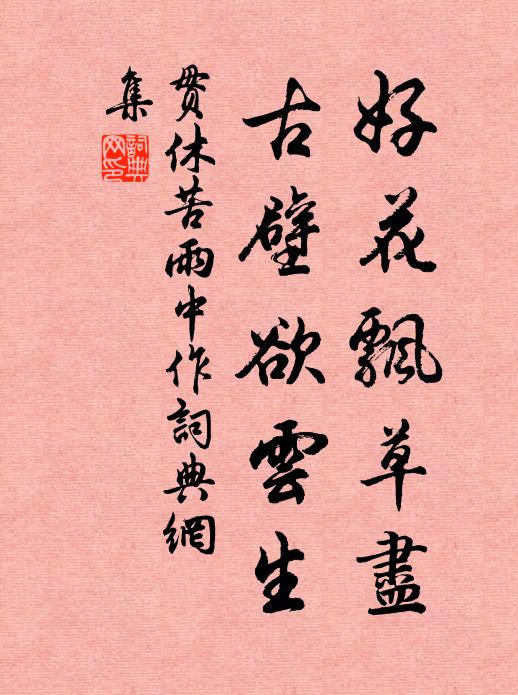 好花飄草盡
古壁欲雲生
貫休苦雨中作詞典網
集
詞典網印